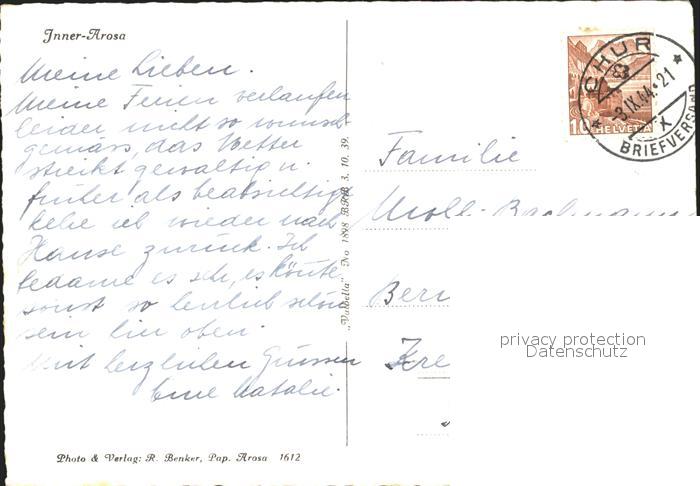 Inner-Arosa
Meine Lieben.
Meine Ferien verlaufen
leider nicht so wunsch-
gemäss, das Wetter
streikt gewaltig u.
früher als beabsichtigt
kehre ich wieder nach
Hause zurück. Ich
bedaure es sehr, es könnte
sonst so herrlich schön
sein hier oben.
Mit herzlichen Grüssen
Eure Natalie.
Photo & Verlag: R. Benker, Pap. Arosa 1612
„Valbella" No 1898 BRB 3. 10. 39.
CHUR
-3.IX.44.-21
BRIEFVERSAND
10 HELVETIA
Familie
Moll-
Bern
Kre
privacy protection
Datenschutz